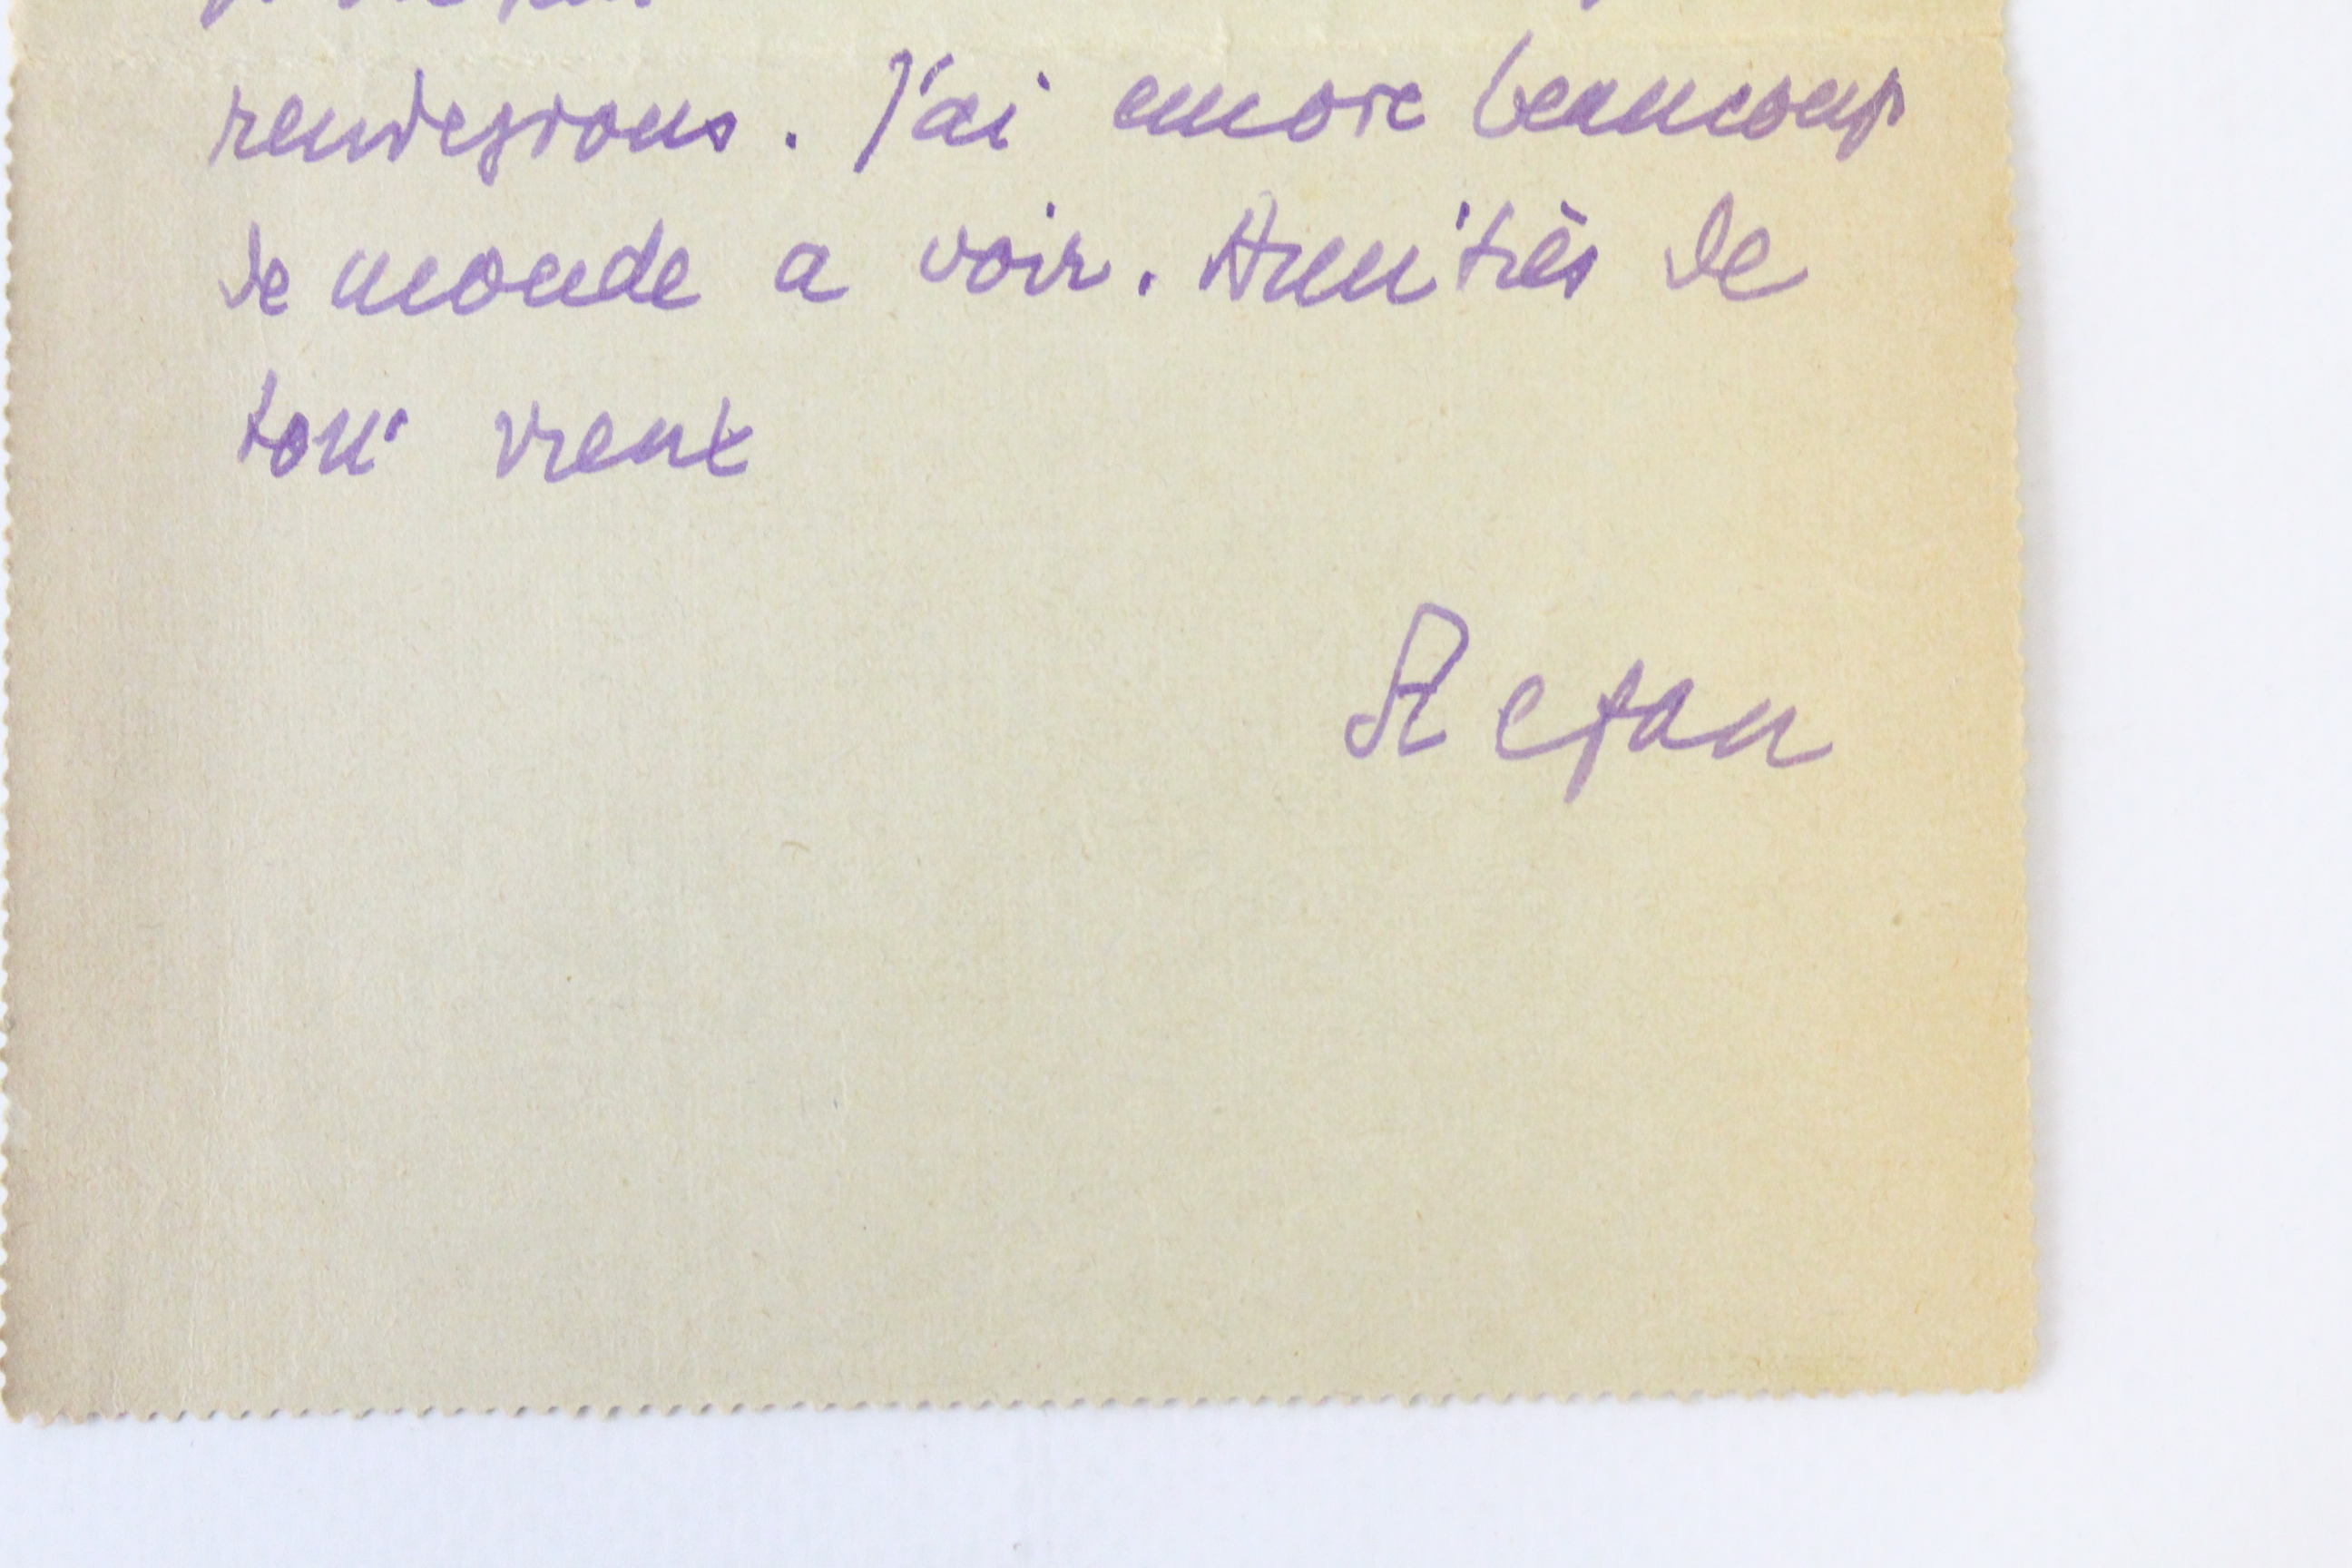 rendezvous. J'ai encore beaucoup
de monde a voir. Amitiés de
ton vieux
Stefan